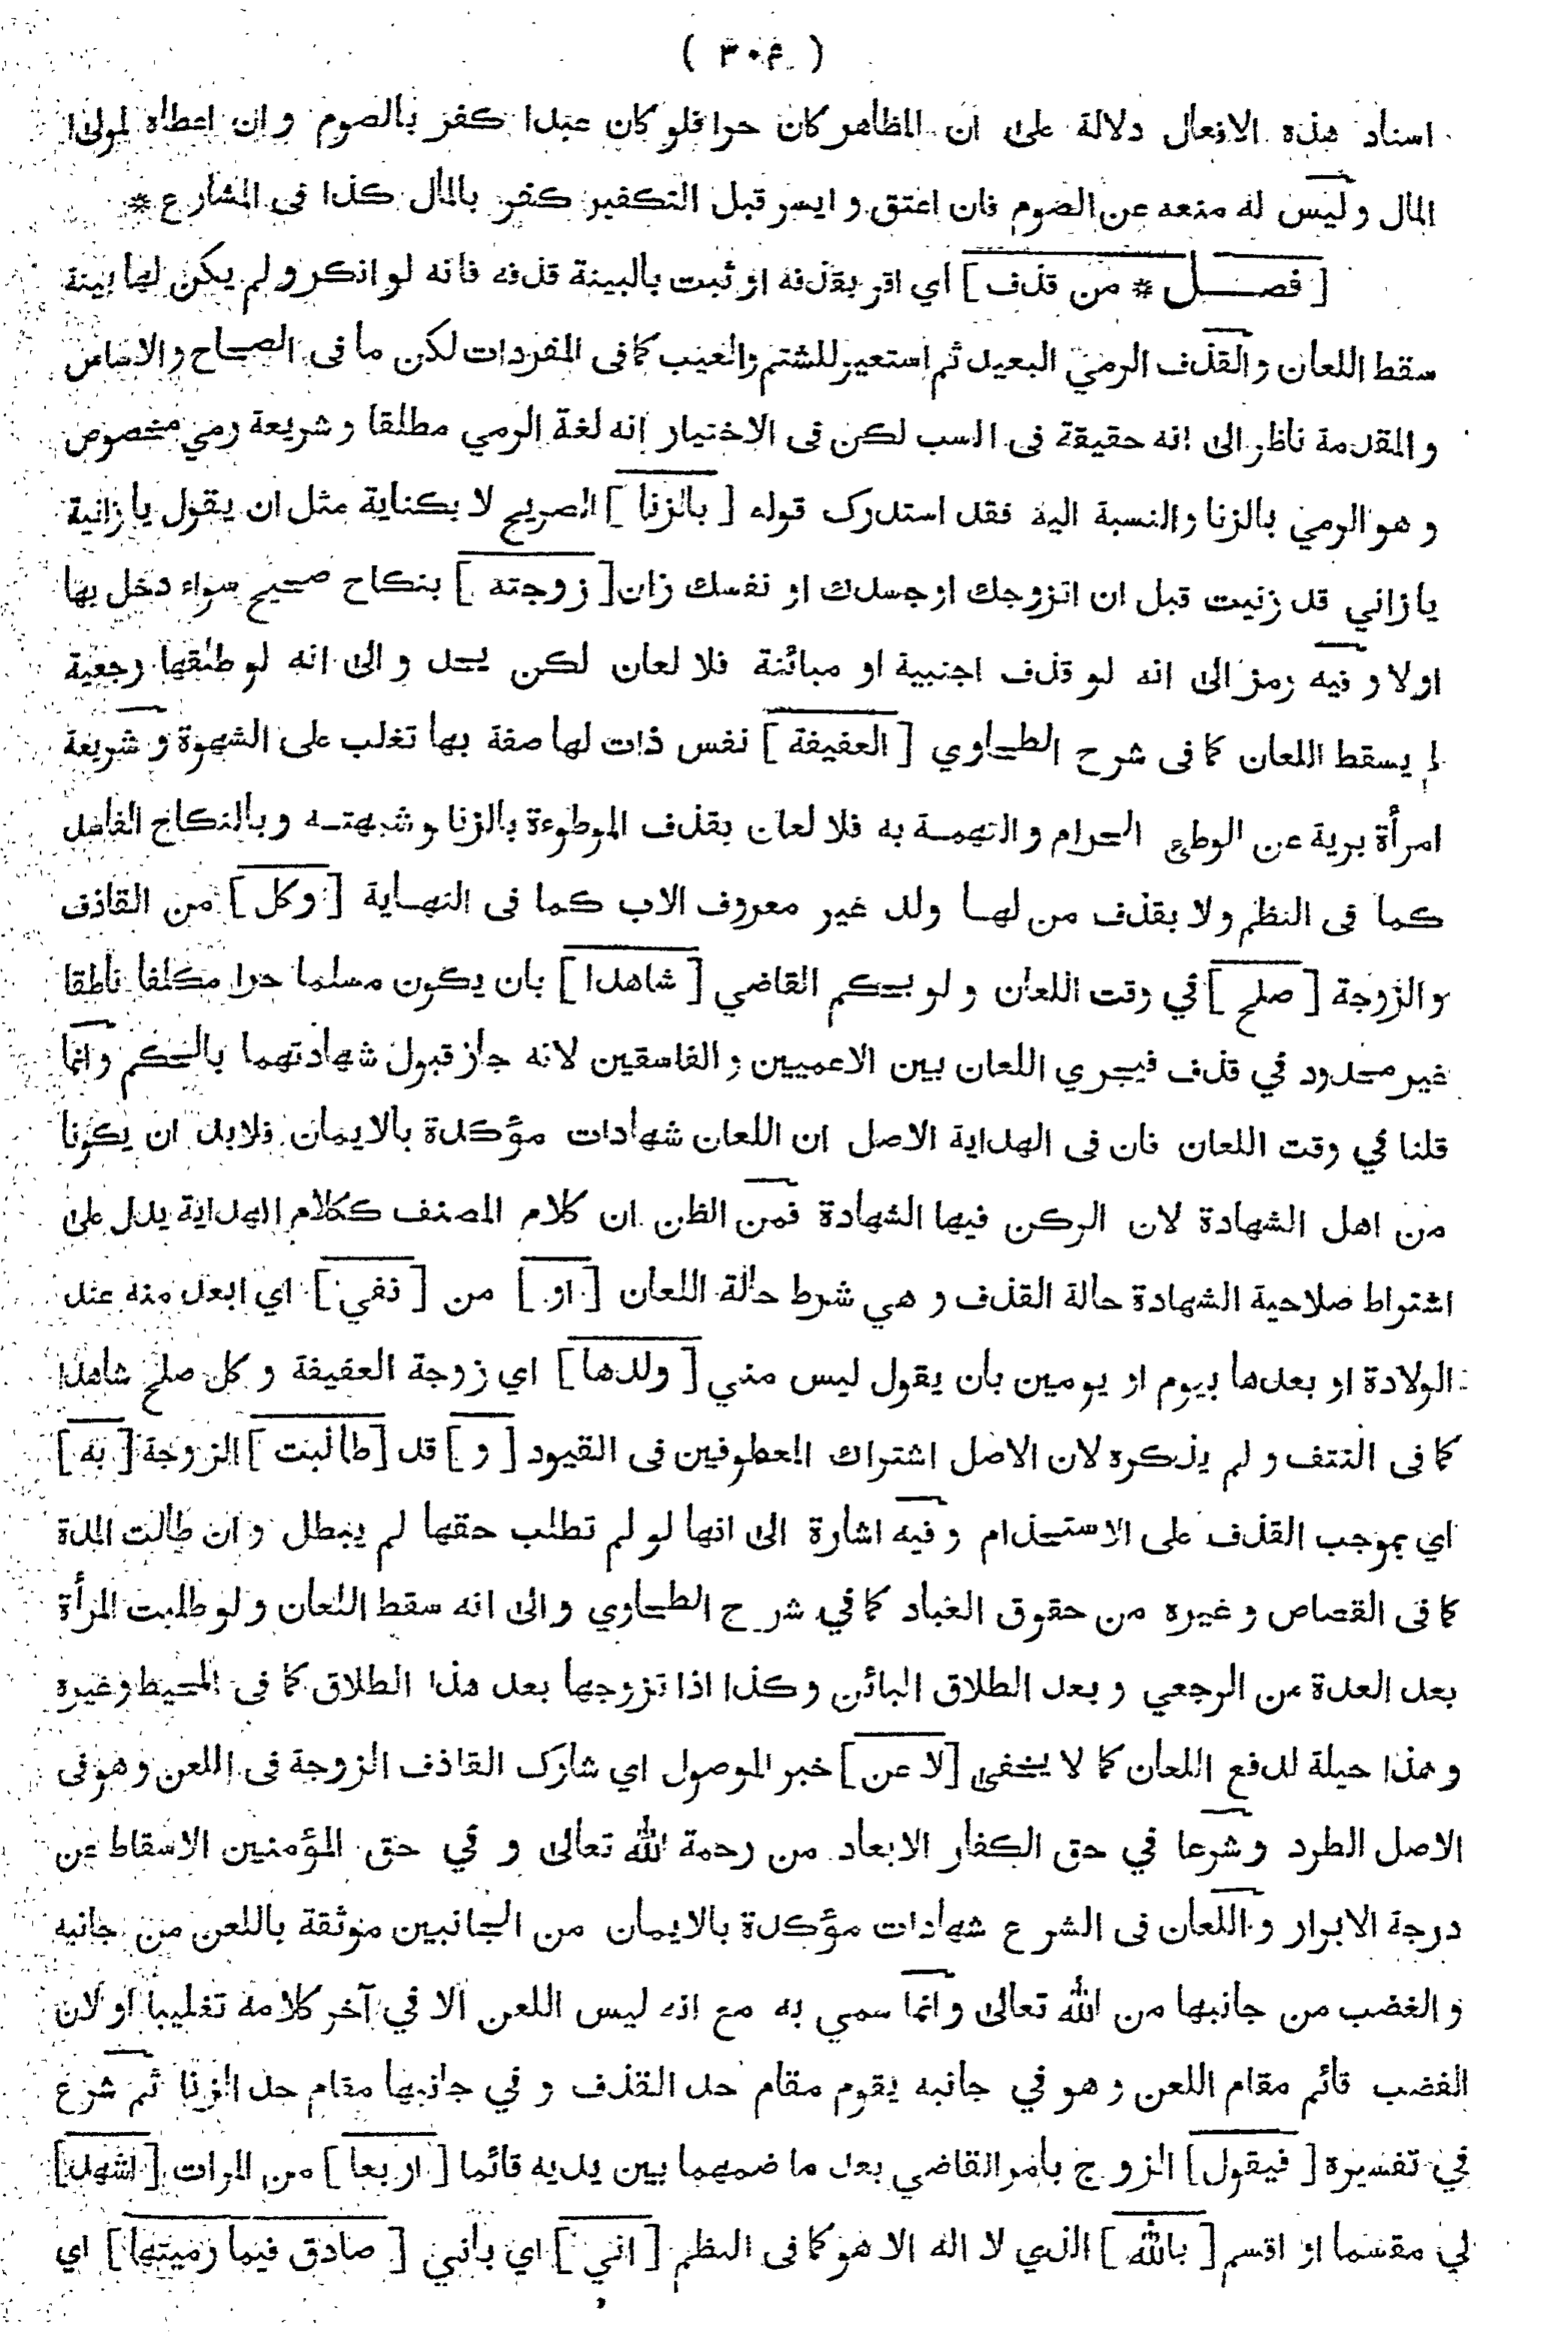 ( ٣٠٤ )
اسناد هذه الافعال دلالة على ان المظاهر كان حرا فلو كان عبدا كفر بالصوم و ان اعطاه لمولى
المال و ليس له منعه عن الصوم فان اعتق و ايسر قبل التكفير كفر بالمال كذا فى المشارع *
[ فصــل * من قذف ] اي اقر بقذفه او ثبت بالبينة قذفه فانه لو انكر و لم يكن لها بينة
سقط اللعان و القذف الرمي البعيد ثم استعير للشتم و العيب كما فى المفردات لكن ما فى الصحاح و الاساس
و المقدمة ناظر الى انه حقيقة فى السب لكن فى الاختيار انه لغة الرمي مطلقا و شريعة رمي مخصوص
و هو الرمي بالزنا و النسبة اليه فقد استدرك قوله [ بالزنا ] الصريح لا بكناية مثل ان يقول يا زانية
يا زاني قد زنيت قبل ان اتزوجك او جسدك او نفسك زان [ زوجته ] بنكاح صحيح سواء دخل بها
اولا و فيه رمز الى انه لو قذف اجنبية او مبائنة فلا لعان لكن يحد و الى انه لو طلقها رجعية
لم يسقط اللعان كما فى شرح الطحاوي [ العفيفة ] نفس ذات لها صفة بها تغلب على الشهوة و شريعة
امرأة برية عن الوطئ الحرام و التهمة به فلا لعان بقذف الموطوءة بالزنا و شبهته و بالنكاح الفاسد
كما فى النظم و لا بقذف من لها ولد غير معروف الاب كما فى النهاية [ و كل ] من القاذف
و الزوجة [ صلح ] في وقت اللعان و لو بحكم القاضي [ شاهدا ] بان يكون مسلما حرا مكلفا ناطقا
غير محدود في قذف فيجري اللعان بين الاعميين و الفاسقين لانه جاز قبول شهادتهما بالحكم و انما
قلنا في وقت اللعان فان فى الهداية الاصل ان اللعان شهادات مؤكدة بالايمان فلابد ان يكونا
من اهل الشهادة لان الركن فيها الشهادة فمن الظن ان كلام المصنف ككلام الهداية يدل على
اشتراط صلاحية الشهادة حالة القذف و هي شرط حالة اللعان [ او ] من [ نفى ] اي ابعد منه عند
الولادة او بعدها بيوم او يومين بان يقول ليس مني [ ولدها ] اي زوجة العفيفة و كل صلح شاهدا
كما فى النتف و لم يذكره لان الاصل اشتراك المعطوفين فى القيود [ و ] قد [ طالبت ] الزوجة [ به ]
اي بموجب القذف على الاستخدام و فيه اشارة الى انها لو لم تطلب حقها لم يبطل و ان طالت المدة
كما فى القصاص و غيره من حقوق العباد كما في شرح الطحاوي و الى انه سقط اللعان و لو طلبت المرأة
بعد العدة من الرجعي و بعد الطلاق البائن و كذا اذا تزوجها بعد هذا الطلاق كما فى المحيط و غيره
و هذا حيلة لدفع اللعان كما لا يخفى [ لا عن ] خبر الموصول اي شارك القاذف الزوجة فى اللعن و هو فى
الاصل الطرد و شرعا في حق الكفار الابعاد من رحمة الله تعالى و في حق المؤمنين الاسقاط عن
درجة الابرار و اللعان فى الشرع شهادات مؤكدة بالايمان من الجانبين موثقة باللعن من جانبه
و الغضب من جانبها من الله تعالى و انما سمي به مع انه ليس اللعن الا في آخر كلامه تغليبا او لان
الغضب قائم مقام اللعن و هو في جانبه يقوم مقام حد القذف و في جانبها مقام حد الزنا ثم شرع
في تفسيره [ فيقول ] الزوج بأمر القاضي بعد ما ضمهما بين يديه قائما [ اربعا ] من المرات [ اشهد ]
لي مقسما او اقسم [ بالله ] الذي لا اله الا هو كما فى النظم [ اني ] اي بأنني [ صادق فيما رميتها ] اي